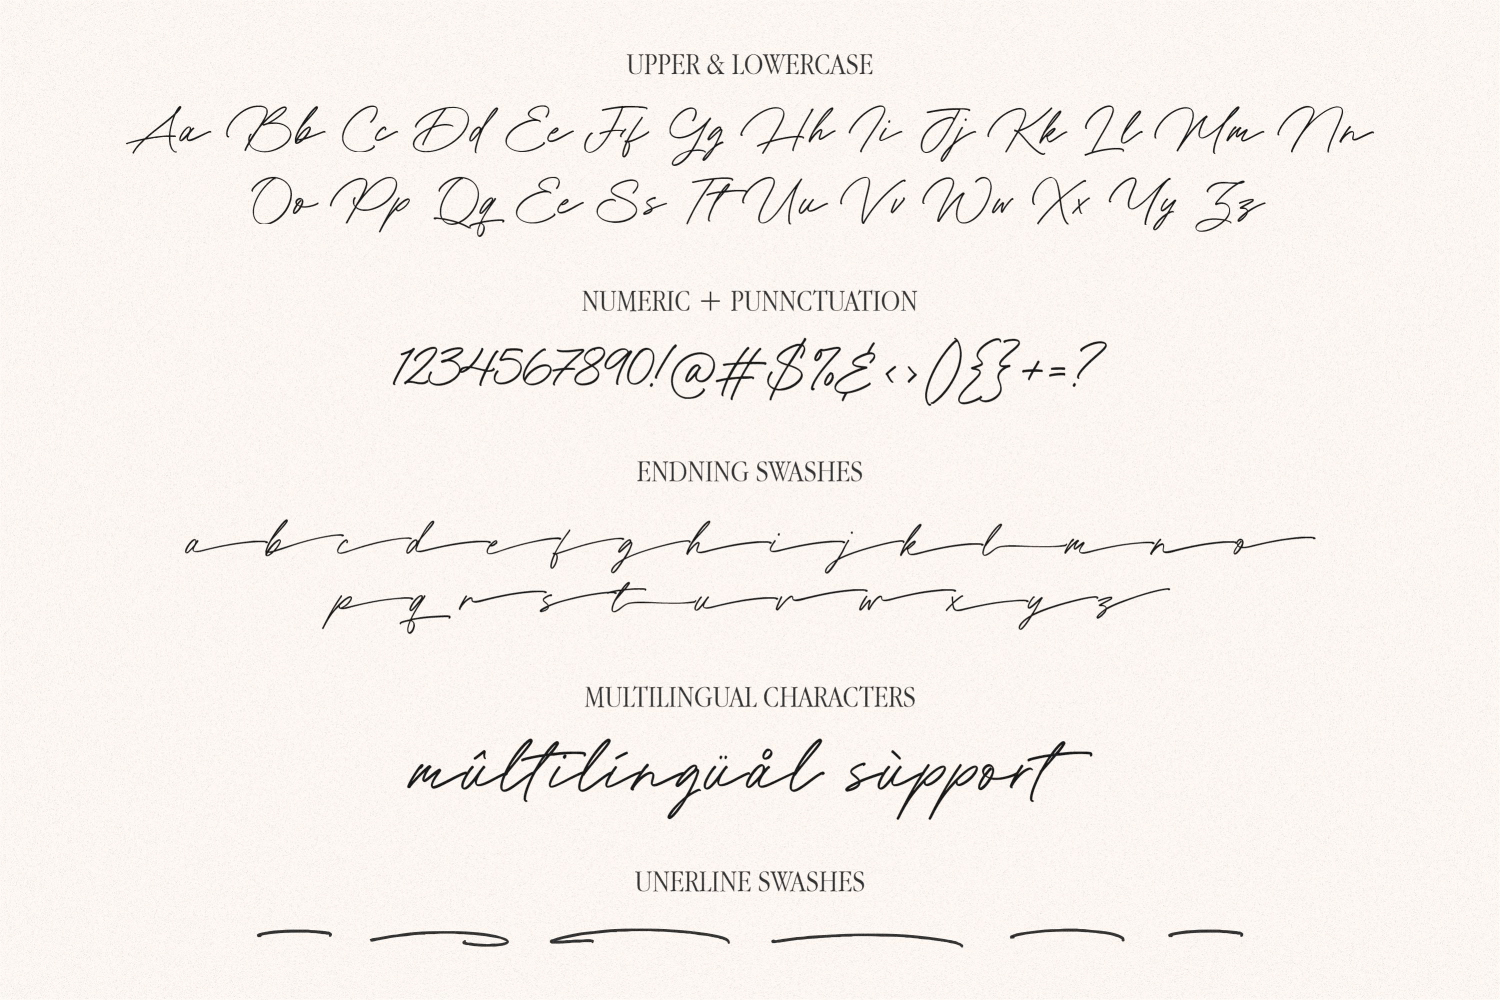 UPPER & LOWERCASE
Aa Bb Cc Dd Ee Ff Gg Hh Ii Jj Kk Ll Mm Nn
Oo Pp Qq Ee Ss Tt Uu Vv Ww Xx Yy Zz
NUMERIC + PUNNCTUATION
1234567890!@#$%&<>(){}+=?
ENDNING SWASHES
a b c d e f g h i j k l m n o
p q r s t u v w x y z
MULTILINGUAL CHARACTERS
mûltilíngüål sùpport
UNERLINE SWASHES